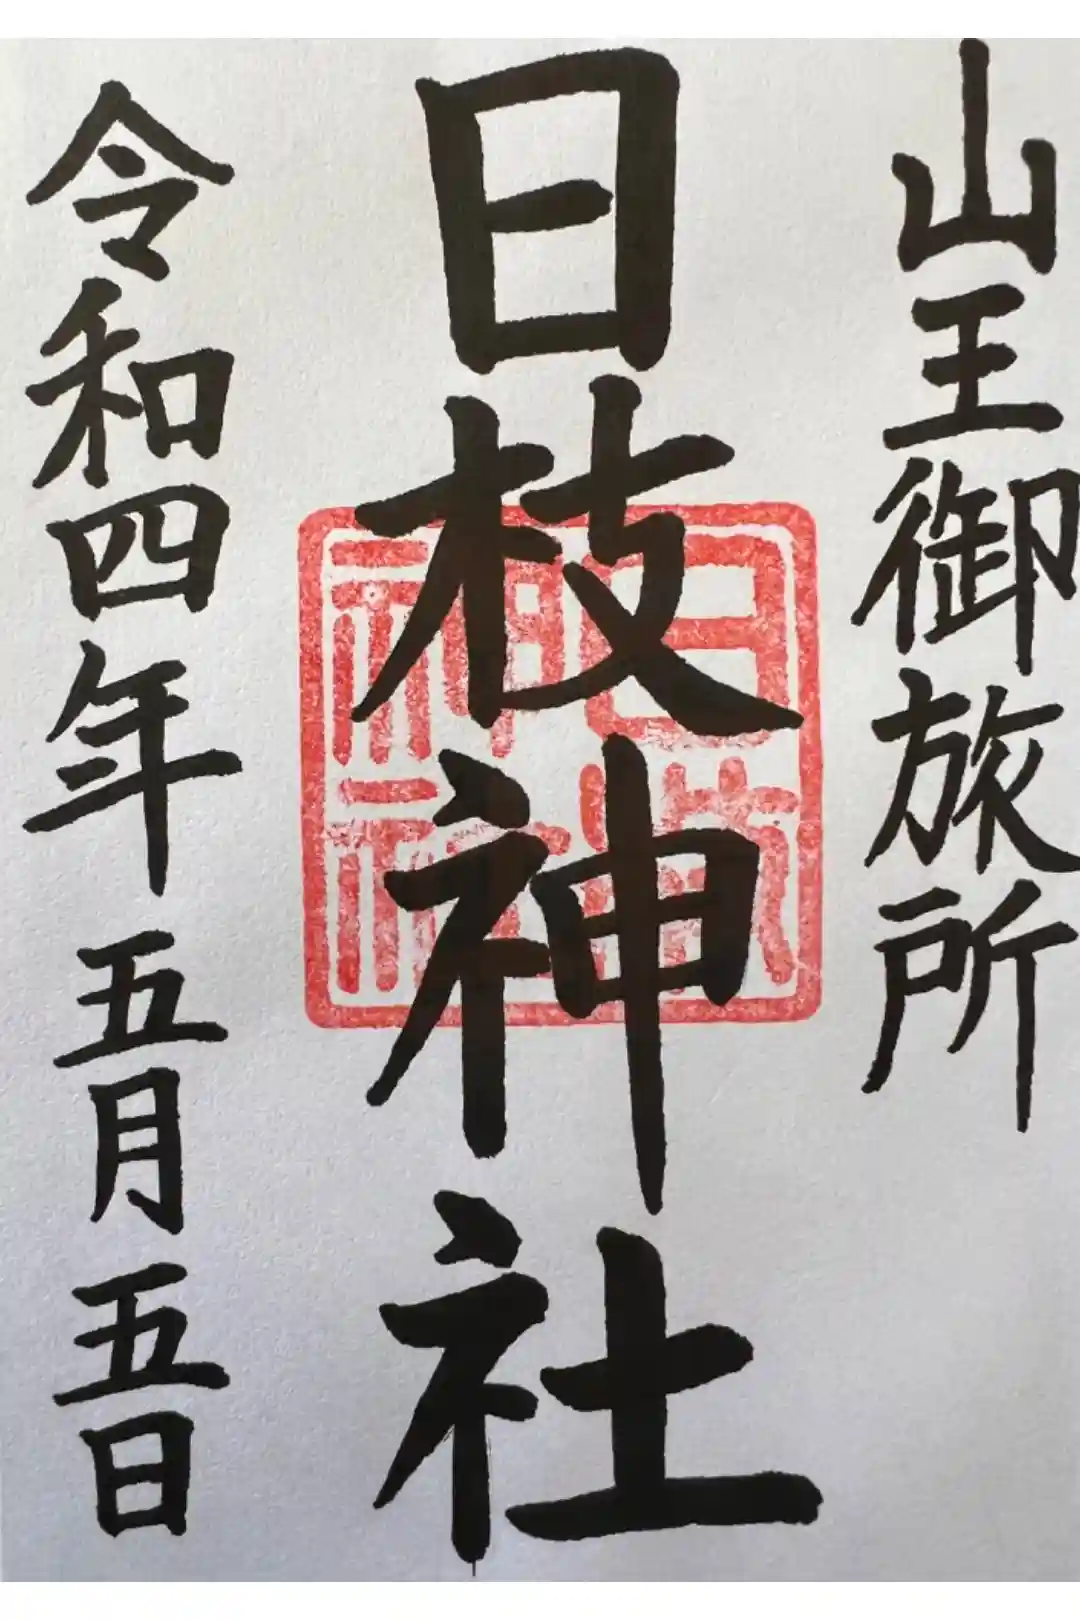 山王御旅所
日枝神社
令和四年五月五日
日枝
神社